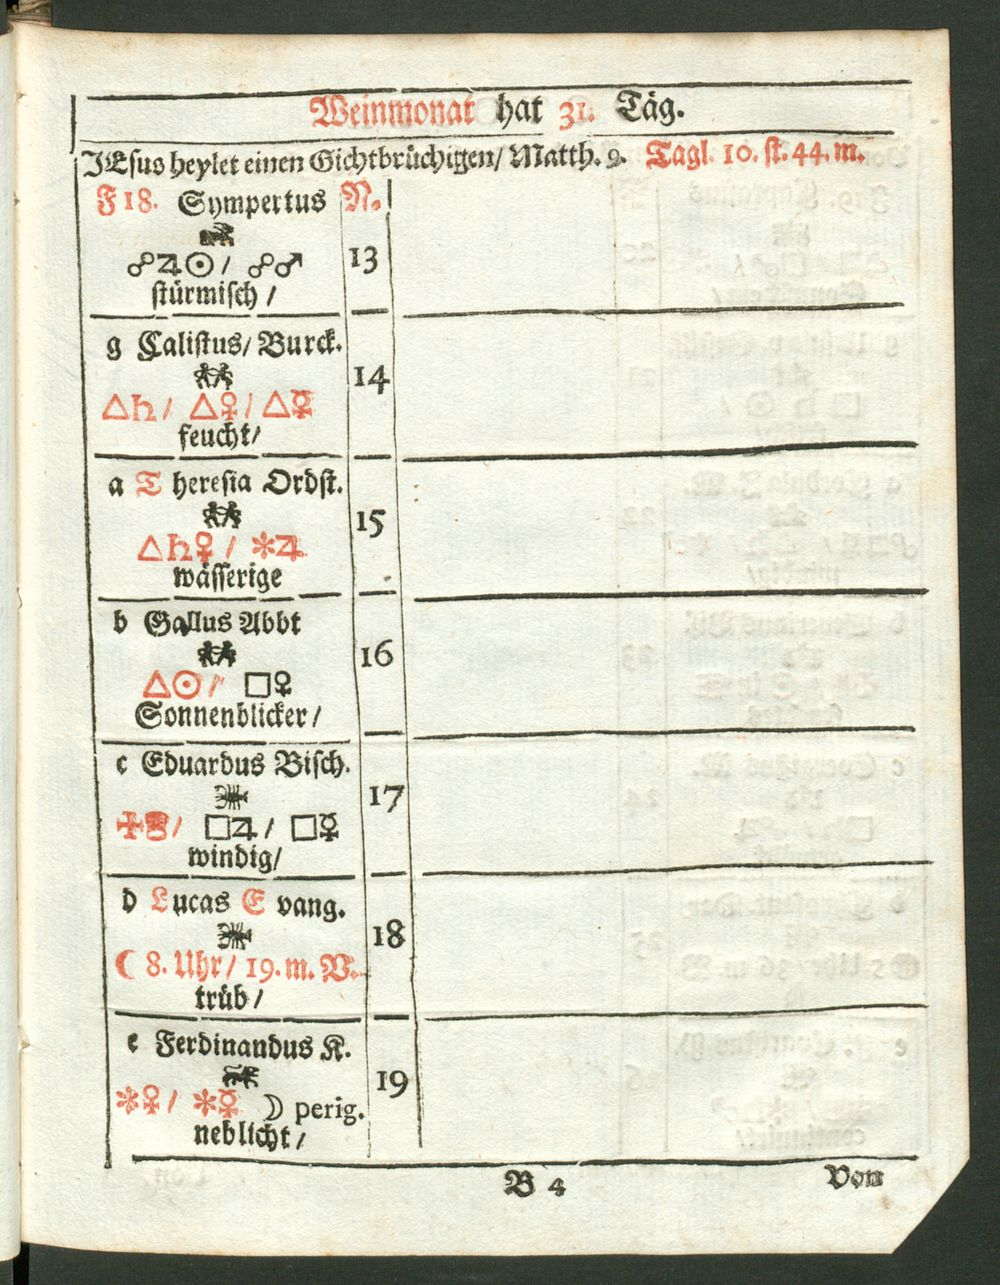 Weinmonat hat 31. Täg.
JEsus heylet einen Gichtbrüchigen/ Matth. 9. Tagl. 10. st. 44. m.
F 18. Sympertus N.
☍♃☉/ ☍♂ 13
stürmisch /
g Calistus/ Burck.
△♄/ △♀/ △☿ 14
feucht/
a Theresia Ordst.
△♄♀/ ✻♃ 15
wässerige
b Gallus Abbt
△☉/ □♀ 16
Sonnenblicker/
c Eduardus Bisch.
□♃/ □☿ 17
windig/
d Lucas Evang.
☾ 8. Uhr/ 19. m. V. 18
trüb/
e Ferdinandus K.
✻♀/ ✻☿ ☽ perig. 19
neblicht/
B 4 Von